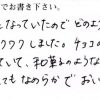 でお書き下さい。
となっていたのでどのよう
クワクしました。チョコの
ていて、和菓子のような
てもなめらかでおい